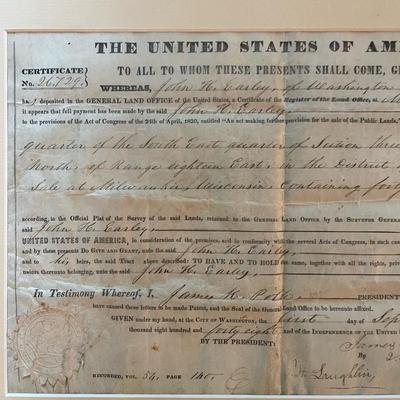 THE UNITED STATES OF AM
CERTIFICATE
No. 26,729
TO ALL TO WHOM THESE PRESENTS SHALL COME, G
WHEREAS, John H. Earley, of Washington
ha s deposited in the GENERAL LAND OFFICE of the United States, a Certificate of the Register of the Land Office, at M
it appears that full payment has been made by the said John H. Earley
to the provisions of the Act of Congress of the 24th of April, 1820, entitled "An act making further provision for the sale of the Public Lands,"
quarter of the South East quarter of Section Three
North, of Range eighteen East, in the District
Sale at Milwaukie, Wisconsin, Containing forty
according to the Official Plat of the Survey of the said Lands, returned to the General Land Office by the SURVEYOR GENERAL
said John H. Earley
UNITED STATES OF AMERICA, in consideration of the premises, and in conformity with the several Acts of Congress, in such case
and by these presents DO GIVE AND GRANT, unto the said John H. Earley
and to his heirs, the said Tract above described: TO HAVE AND TO HOLD the same, together with all the rights, privi
unto the said John H. Earley
In Testimony Whereof, I, James K. Polk PRESIDENT
have caused these letters to be made Patent, and the Seal of the General Land Office to be hereunto affixed.
GIVEN under my hand, at the CITY OF WASHINGTON, the first day of Sep
thousand eight hundred and forty eight and of the INDEPENDENCE OF THE UNITED
BY THE PRESIDENT: James
By
RECORDED, VOL. 54, PAGE
Laughlin